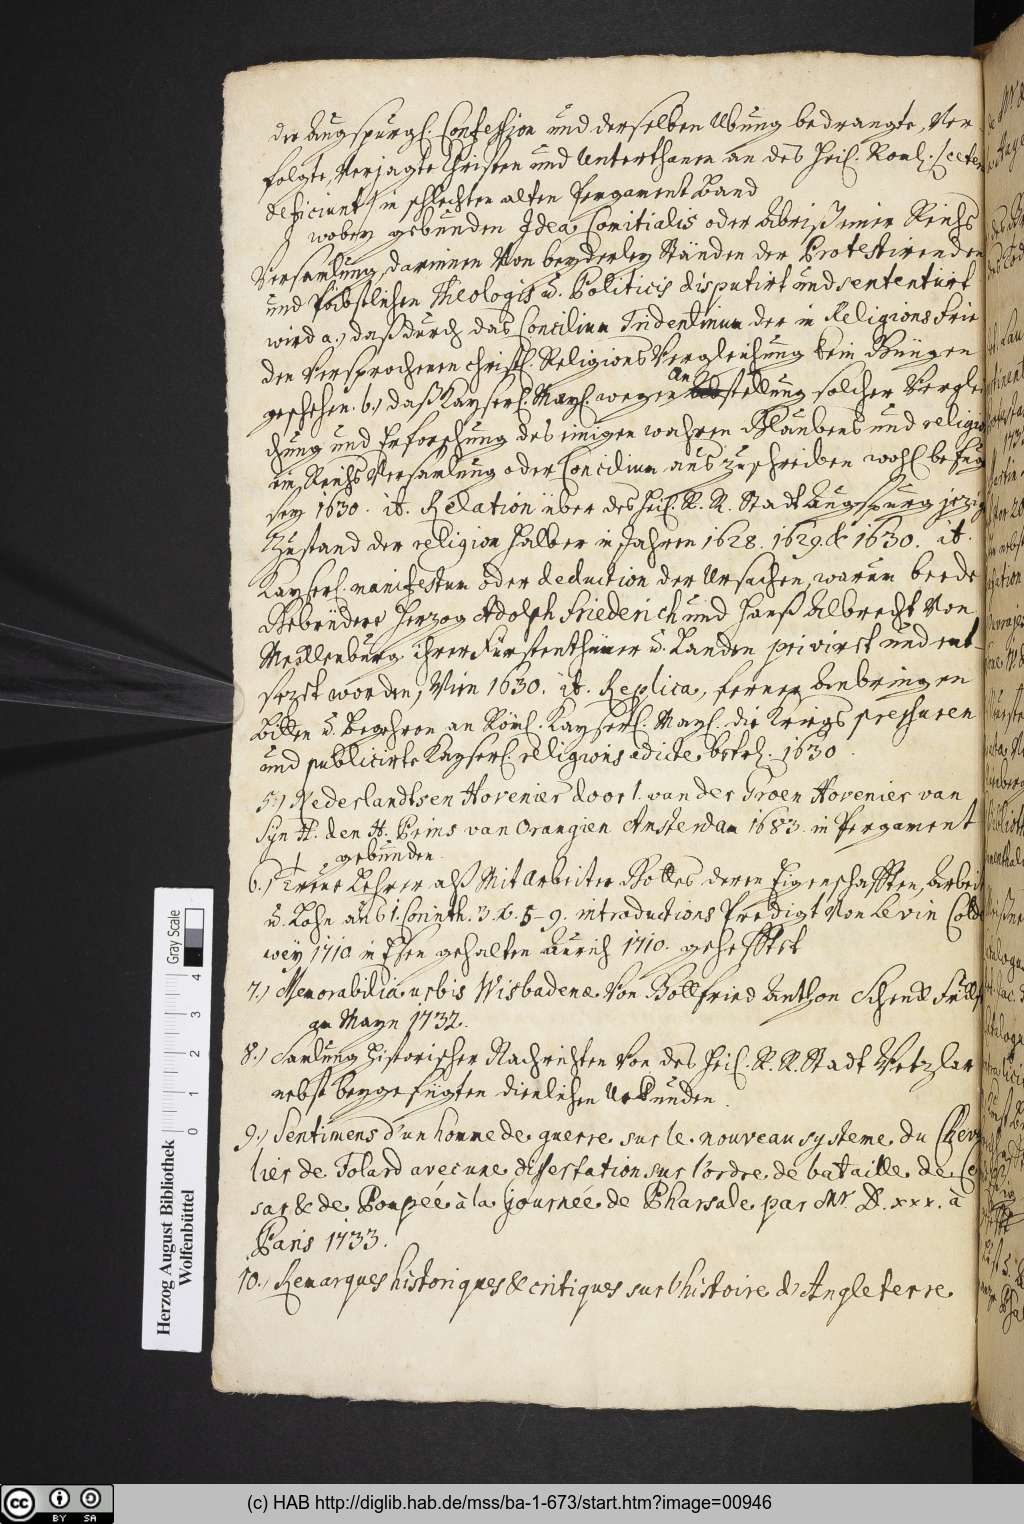 der Augspurgl. Confession und derselben Ubung bedrangte, Ver
folgte, Verjagte Christen und Unterthanen an des Heil. Röml. /:cetera
deficiunt:/ in schlechten alten Pergament Band
wobey gebunden Idea Comitialis oder Abriß einer Reichs
Versamlung, darinnen Von beyderley Ständen der Protestirenden
und Päbstlichen Theologis u. Politicis disputirt und sententiirt
wird a.) daß durch das Concilium Tridentinum der in Religions Frie
den Versprochenen Christl. Religions Vergleichung kein Gnügen
geschehen. b.) daß Kayserl. Mayl. wegen Anstellung solcher Verglei
chung und Erforschung des einigen wahren Glaubens und religion
ein Reichs Versamlung oder Concilium auszuschreiben wohl befugt
sey 1630. it. Relation über des Heil. R. R. Stadt Augspurg jezig
Zustand der religion halber in Jahren 1628. 1629. & 1630. it.
Kayserl. manifestum oder deduction der Ursachen, warum beede
Gebrüdere Herzog Adolph Friederich und Hanß Albrecht Von
Mecklenburg ihrer Fürstenthümer u. Landen privirt und ent-
sezt worden, Wien 1630. it. Replica, ferner Anbringen
Bitten u. Begehren an Röml. Kayserl. Mayl. die Kriegs pressuren
und publicirte Kayserl. religions edicte betrl. 1630.
5.) Nederlandtsen Hovenier door I. van der Groen Hovenier van
Syn H. den H. Prins van Orangien Amsterdam 1683. in Pergament
gebunden.
6.) Treue Lehrer alß Mit Arbeiter Gottes deren Eigenschafften, Arbeit
u. Lohn aus 1. Corinth. 3. v. 5-9. introductions Predigt Von Levin Cold
wey 1710 in Esen gehalten Aurich 1710. gehefftet
7.) Memorabilia urbis Wisbadenæ Von Gottfried Anthon Schenck Frkft
am Mayn 1732.
8.) Samlung historischer Nachrichten Von des Heil. R. R. Stadt Wetzlar
nebst beygefügten dienlichen Urkunden.
9.) Sentimens d'un homme de guerre sur le nouveau systeme du Cheva
lier de Folard avec une dissertation sur l'ordre de bataille de Ce
sar & de Pompée à la journee de Pharsale par Mr. D. xxx. à
Paris 1733.
10.) Remarques historiques & critiques sur l'histoire d'Angleterre
Herzog August Bibliothek
Wolfenbüttel
Gray Scale
0 1 2 3 4
cc BY SA
(c) HAB http://diglib.hab.de/mss/ba-1-673/start.htm?image=00946